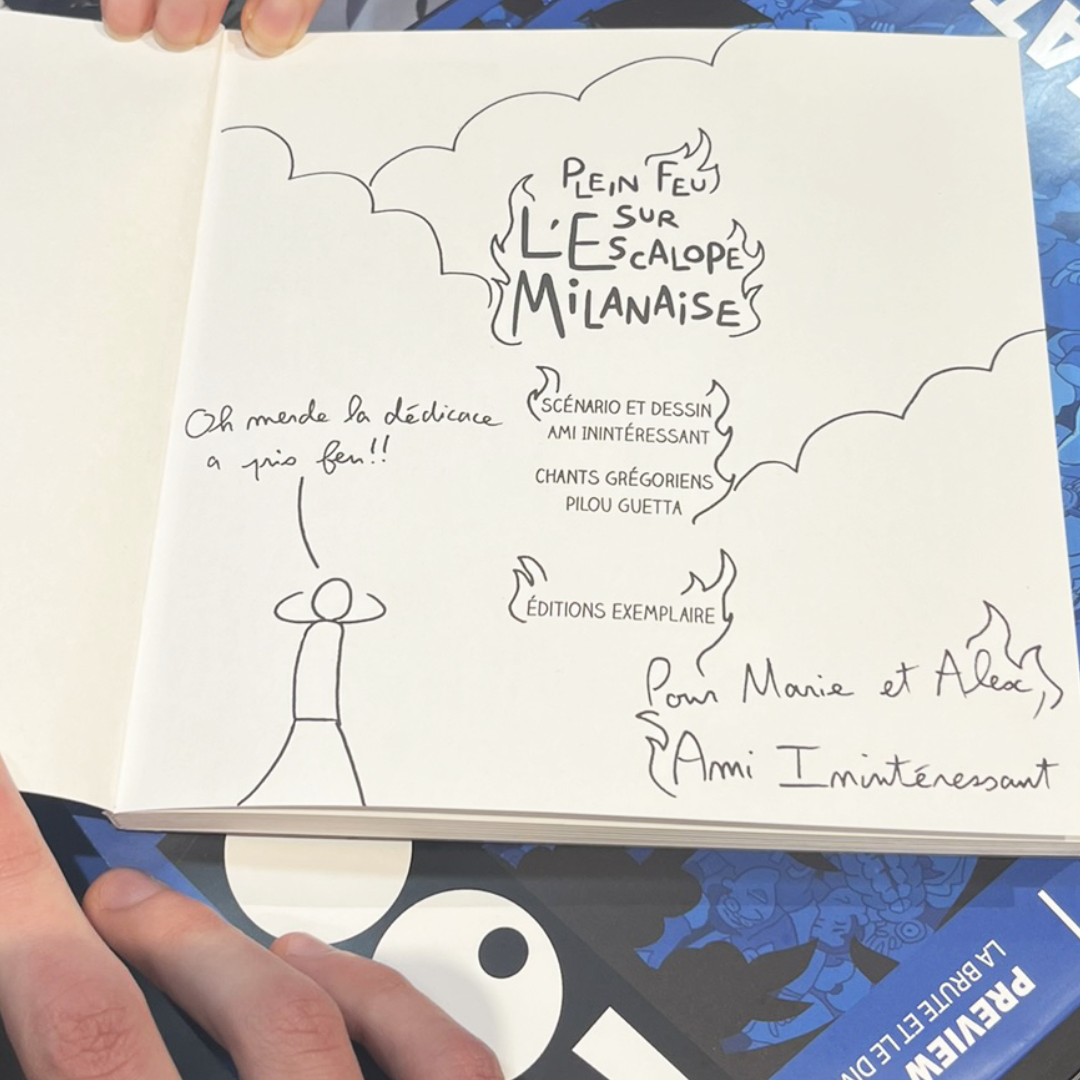 PLEIN FEU
SUR
L'ESCALOPE
MILANAISE
Oh merde la dédicace
a pris feu!!
SCÉNARIO ET DESSIN
AMI ININTÉRESSANT
CHANTS GRÉGORIENS
PILOU GUETTA
ÉDITIONS EXEMPLAIRE
Pour Marie et Alex,
Ami Inintéressant
PREVIEW
LA BRUTE ET LE